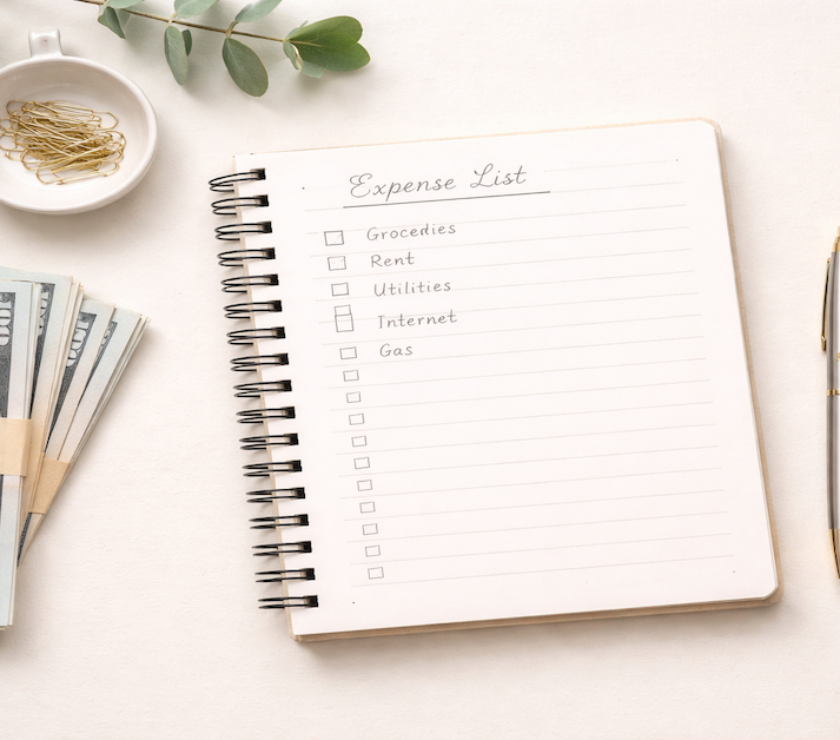 Expense List
Grocedies
Rent
Utilities
Internet
Gas